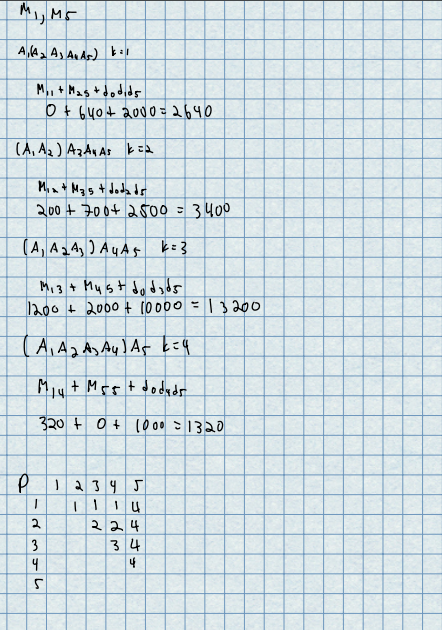 M₁, M5
A₁(A₂ A₃ A₄A₅) k=1
M₁₁ + M₂₅ + d₀d₁d₅
0 + 640 + 2000 = 2640
(A₁ A₂) A₃A₄A₅ k=2
M₁₂ + M₃₅ + d₀d₂d₅
200 + 700 + 2500 = 3400
(A₁ A₂A₃) A₄A₅ k=3
M₁₃ + M₄₅ + d₀d₃d₅
1200 + 2000 + 10000 = 13200
(A₁A₂A₃A₄)A₅ k=4
M₁₄ + M₅₅ + d₀d₄d₅
320 + 0 + 1000 = 1320
P 1 2 3 4 5
1 1 1 1 4
2 2 2 4
3 3 4
4 4
5